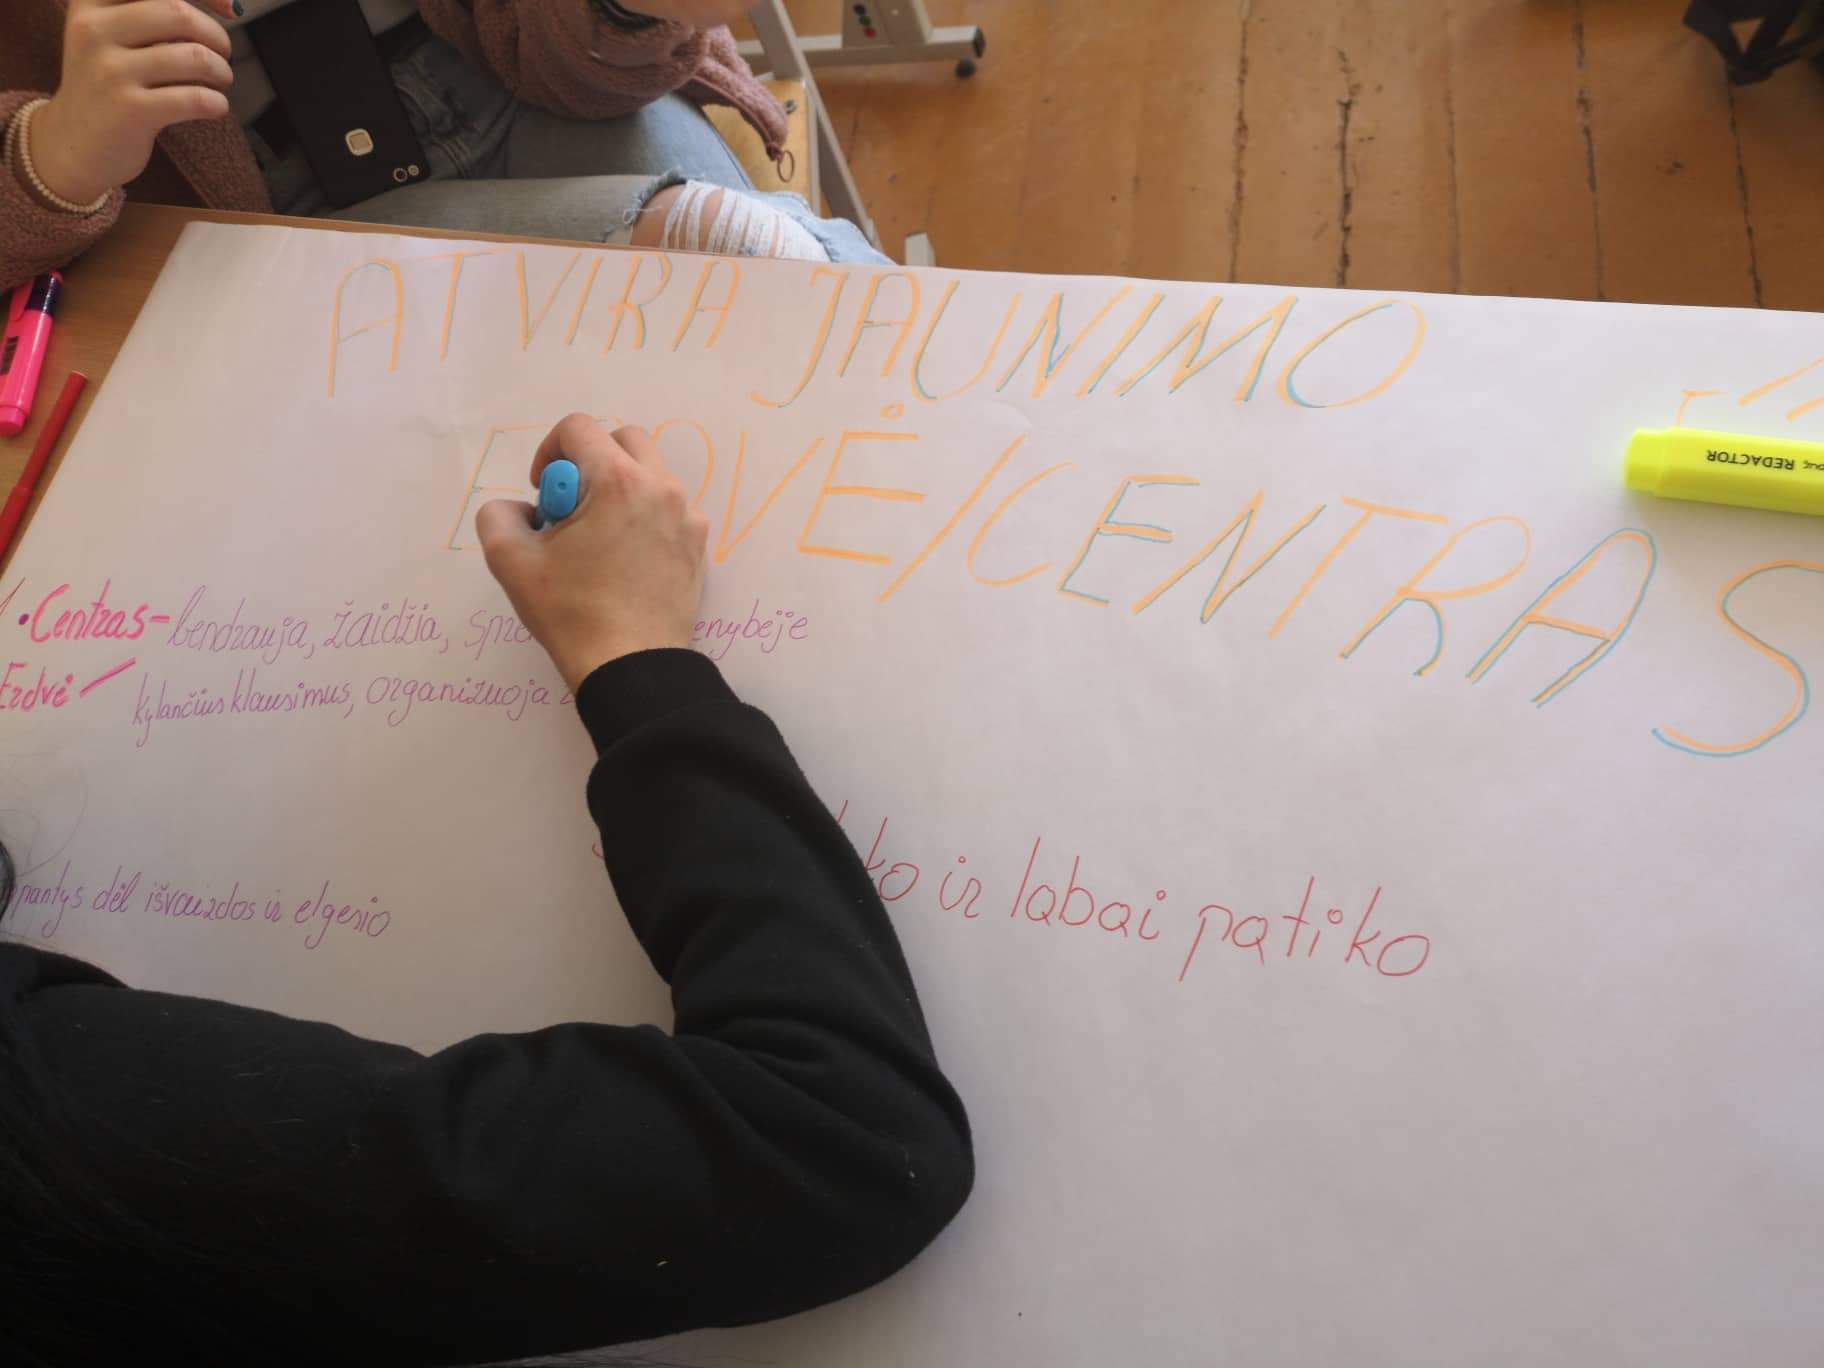 ATVIRA JAUNIMO
E DVĖ/CENTRAS
REDACTOR
1 • Centras - bendrauja, žaidžia, spre enybėje
Erdvė kylančius klausimus, organizuoja
pantys dėl išvaizdos ir elgesio
ko ir labai patiko